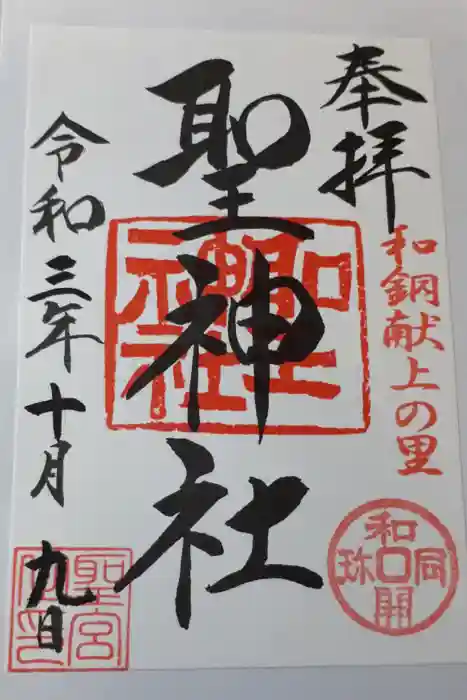 奉拝
和銅献上の里
聖神社
聖神社
和同開珎
令和三年十月九日
聖宮